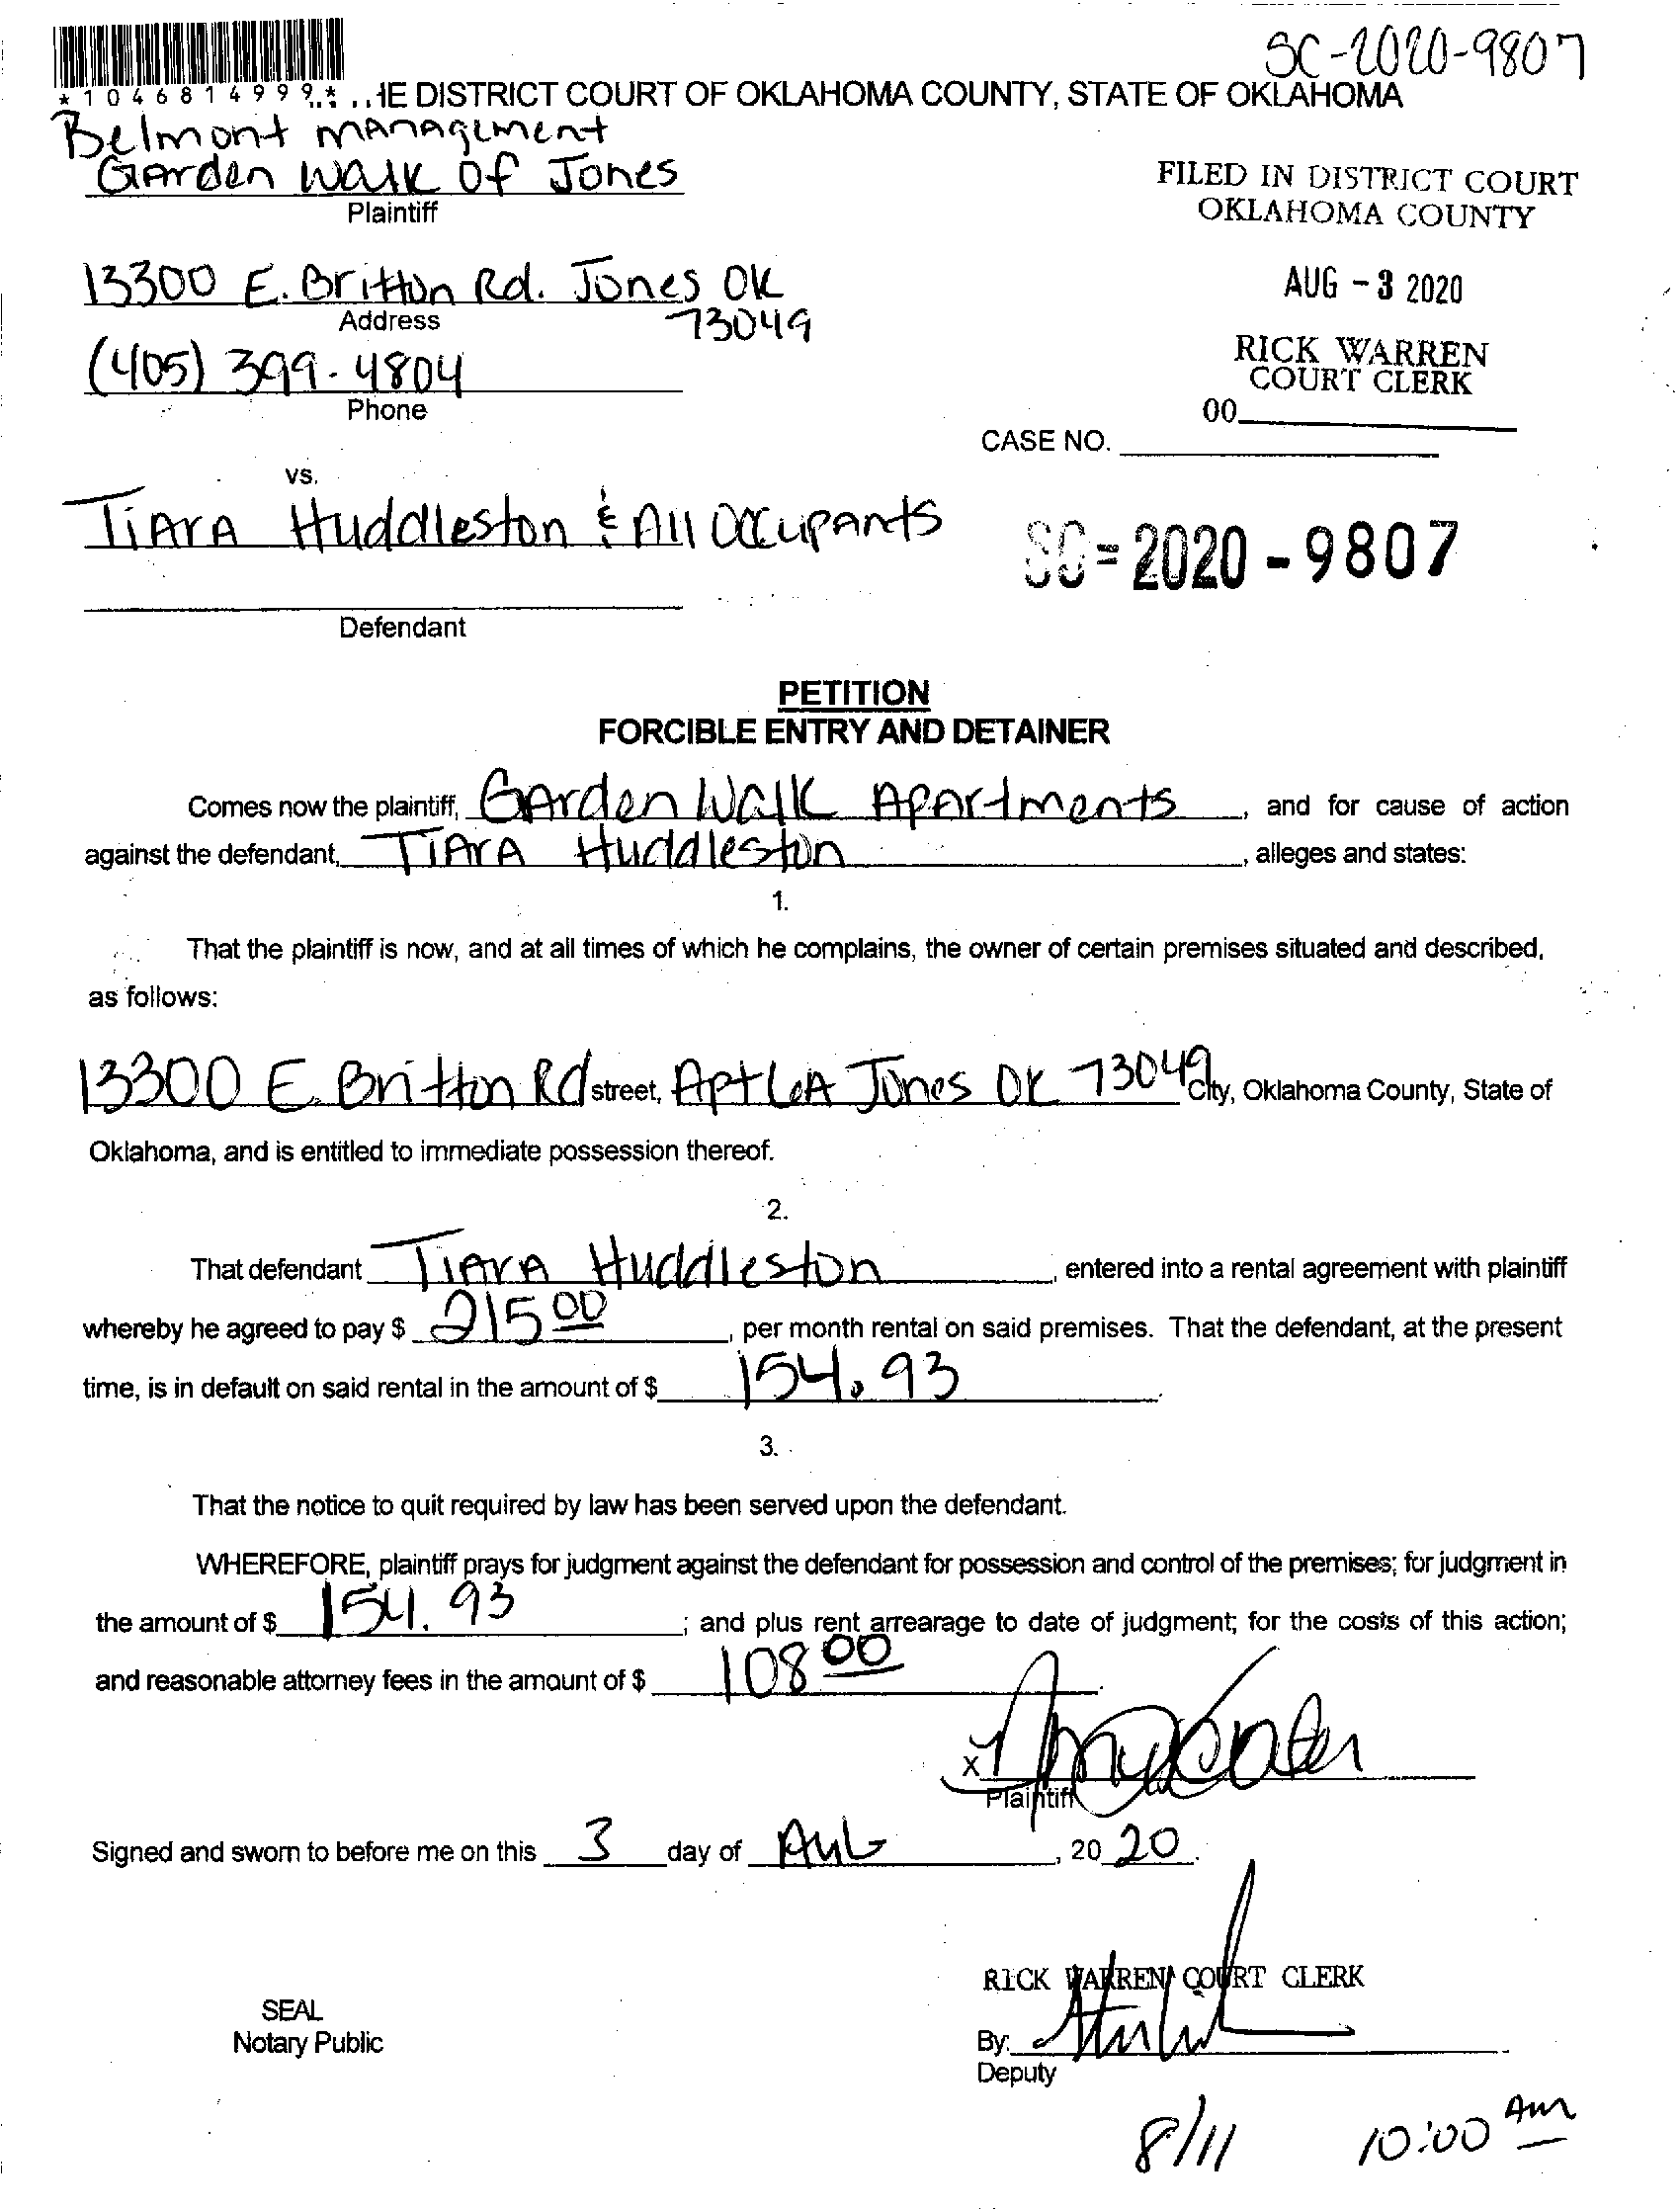 SC-2020-9807
*1046814999* ..HE DISTRICT COURT OF OKLAHOMA COUNTY, STATE OF OKLAHOMA
Belmont management
Garden Walk Of Jones
Plaintiff
FILED IN DISTRICT COURT
OKLAHOMA COUNTY
13300 E. Britton Rd. Jones OK
73049
Address
AUG - 3 2020
(405) 399-4804
Phone
RICK WARREN
COURT CLERK
00
CASE NO.
vs.
Tiara Huddleston & All Occupants
SC-2020-9807
Defendant
PETITION
FORCIBLE ENTRY AND DETAINER
Comes now the plaintiff, Garden Walk Apartments, and for cause of action
against the defendant, Tiara Huddleston, alleges and states:
1.
That the plaintiff is now, and at all times of which he complains, the owner of certain premises situated and described,
as follows:
13300 E. Britton Rd street, Apt 6A Jones OK 73049 City, Oklahoma County, State of
Oklahoma, and is entitled to immediate possession thereof.
2.
That defendant Tiara Huddleston, entered into a rental agreement with plaintiff
whereby he agreed to pay $ 215 00, per month rental on said premises. That the defendant, at the present
time, is in default on said rental in the amount of $ 154.93.
3.
That the notice to quit required by law has been served upon the defendant.
WHEREFORE, plaintiff prays for judgment against the defendant for possession and control of the premises; for judgment in
the amount of $ 154.93; and plus rent arrearage to date of judgment; for the costs of this action;
and reasonable attorney fees in the amount of $ 108 00.
X
Plaintiff
Signed and sworn to before me on this 3 day of Aug, 20 20.
RICK WARREN COURT CLERK
SEAL
Notary Public
By:
Deputy
8/11 10:00 Am